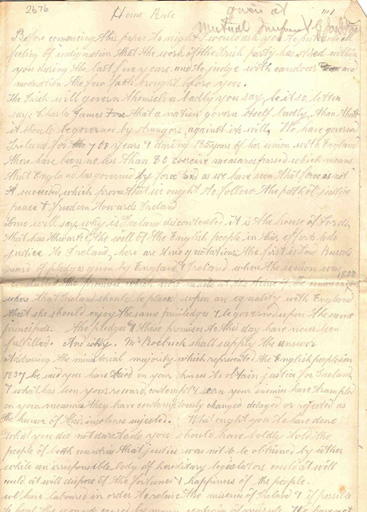 2676
Home Rule
given at
Mutual Imp
Before commencing this paper to night I would ask you to put
feeling of indignation that the work of the Irish party has within
you during the last few years and to judge with candour and
moderation the few facts brought before you.
The Irish will govern themselves badly you say, be it so, better
says Charles James Fox that a nation govern itself badly, than that
it should be governed by strangers against its will. We have governed
Ireland for 7 years & during 85 years of her union with England
there have been no less than 80 coercive measures passed which means
that England has governed by force and as we have seen that force has not
succeeded, which proves that we ought to follow the path of justice
peace & freedom towards Ireland
Some will say why is Ireland discontented, it is the house of Lords
that has thwarted the will of the English people in their efforts to do
justice to Ireland, here are two quotations the first is
word of pledges given by England to Ireland when the union was
1800
was that Ireland should be placed upon an equality with England
that she should enjoy the same privileges & be governed upon the same
principals. The pledges & these promises to this day have never been
fulfilled. And why. Mr Roebuck shall supply the answer
addressing the ministerial majority which represented the English people in
1837 he said you have in your power to obtain justice for Ireland
& what has been your reward, contempt & scorn your enemies have trampled
on your measures they have contemptuously changed delayed or rejected as
the humour of their insolence suggested. What ought you to have done
what you did not dare to do you should have boldly told the
people of both countries that justice was not to be obtained by either
while an irresponsible body of hereditary legislators could at will
dispose of the fortunes & happiness of the people.
we have laboured in order to relieve the miseries of Ireland & if possible
to heal the wounds caused by many